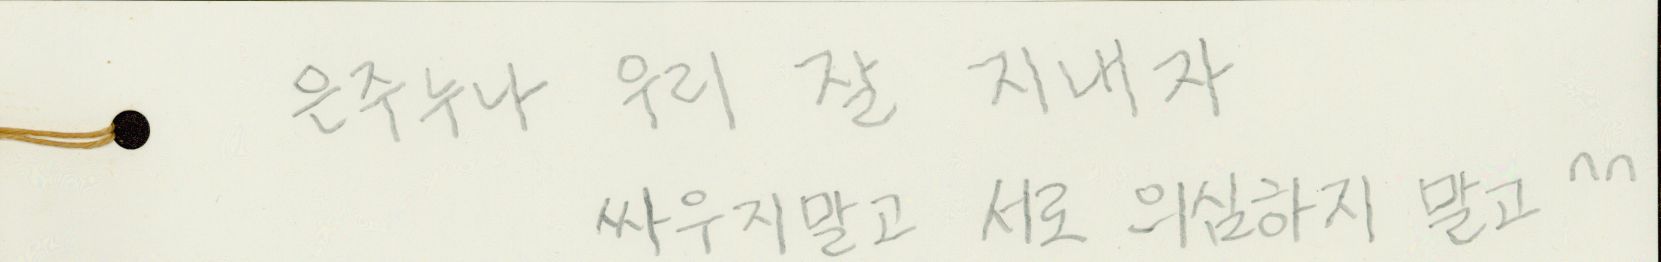 은주누나 우리 잘 지내자
싸우지말고 서로 의심하지 말고 ^^